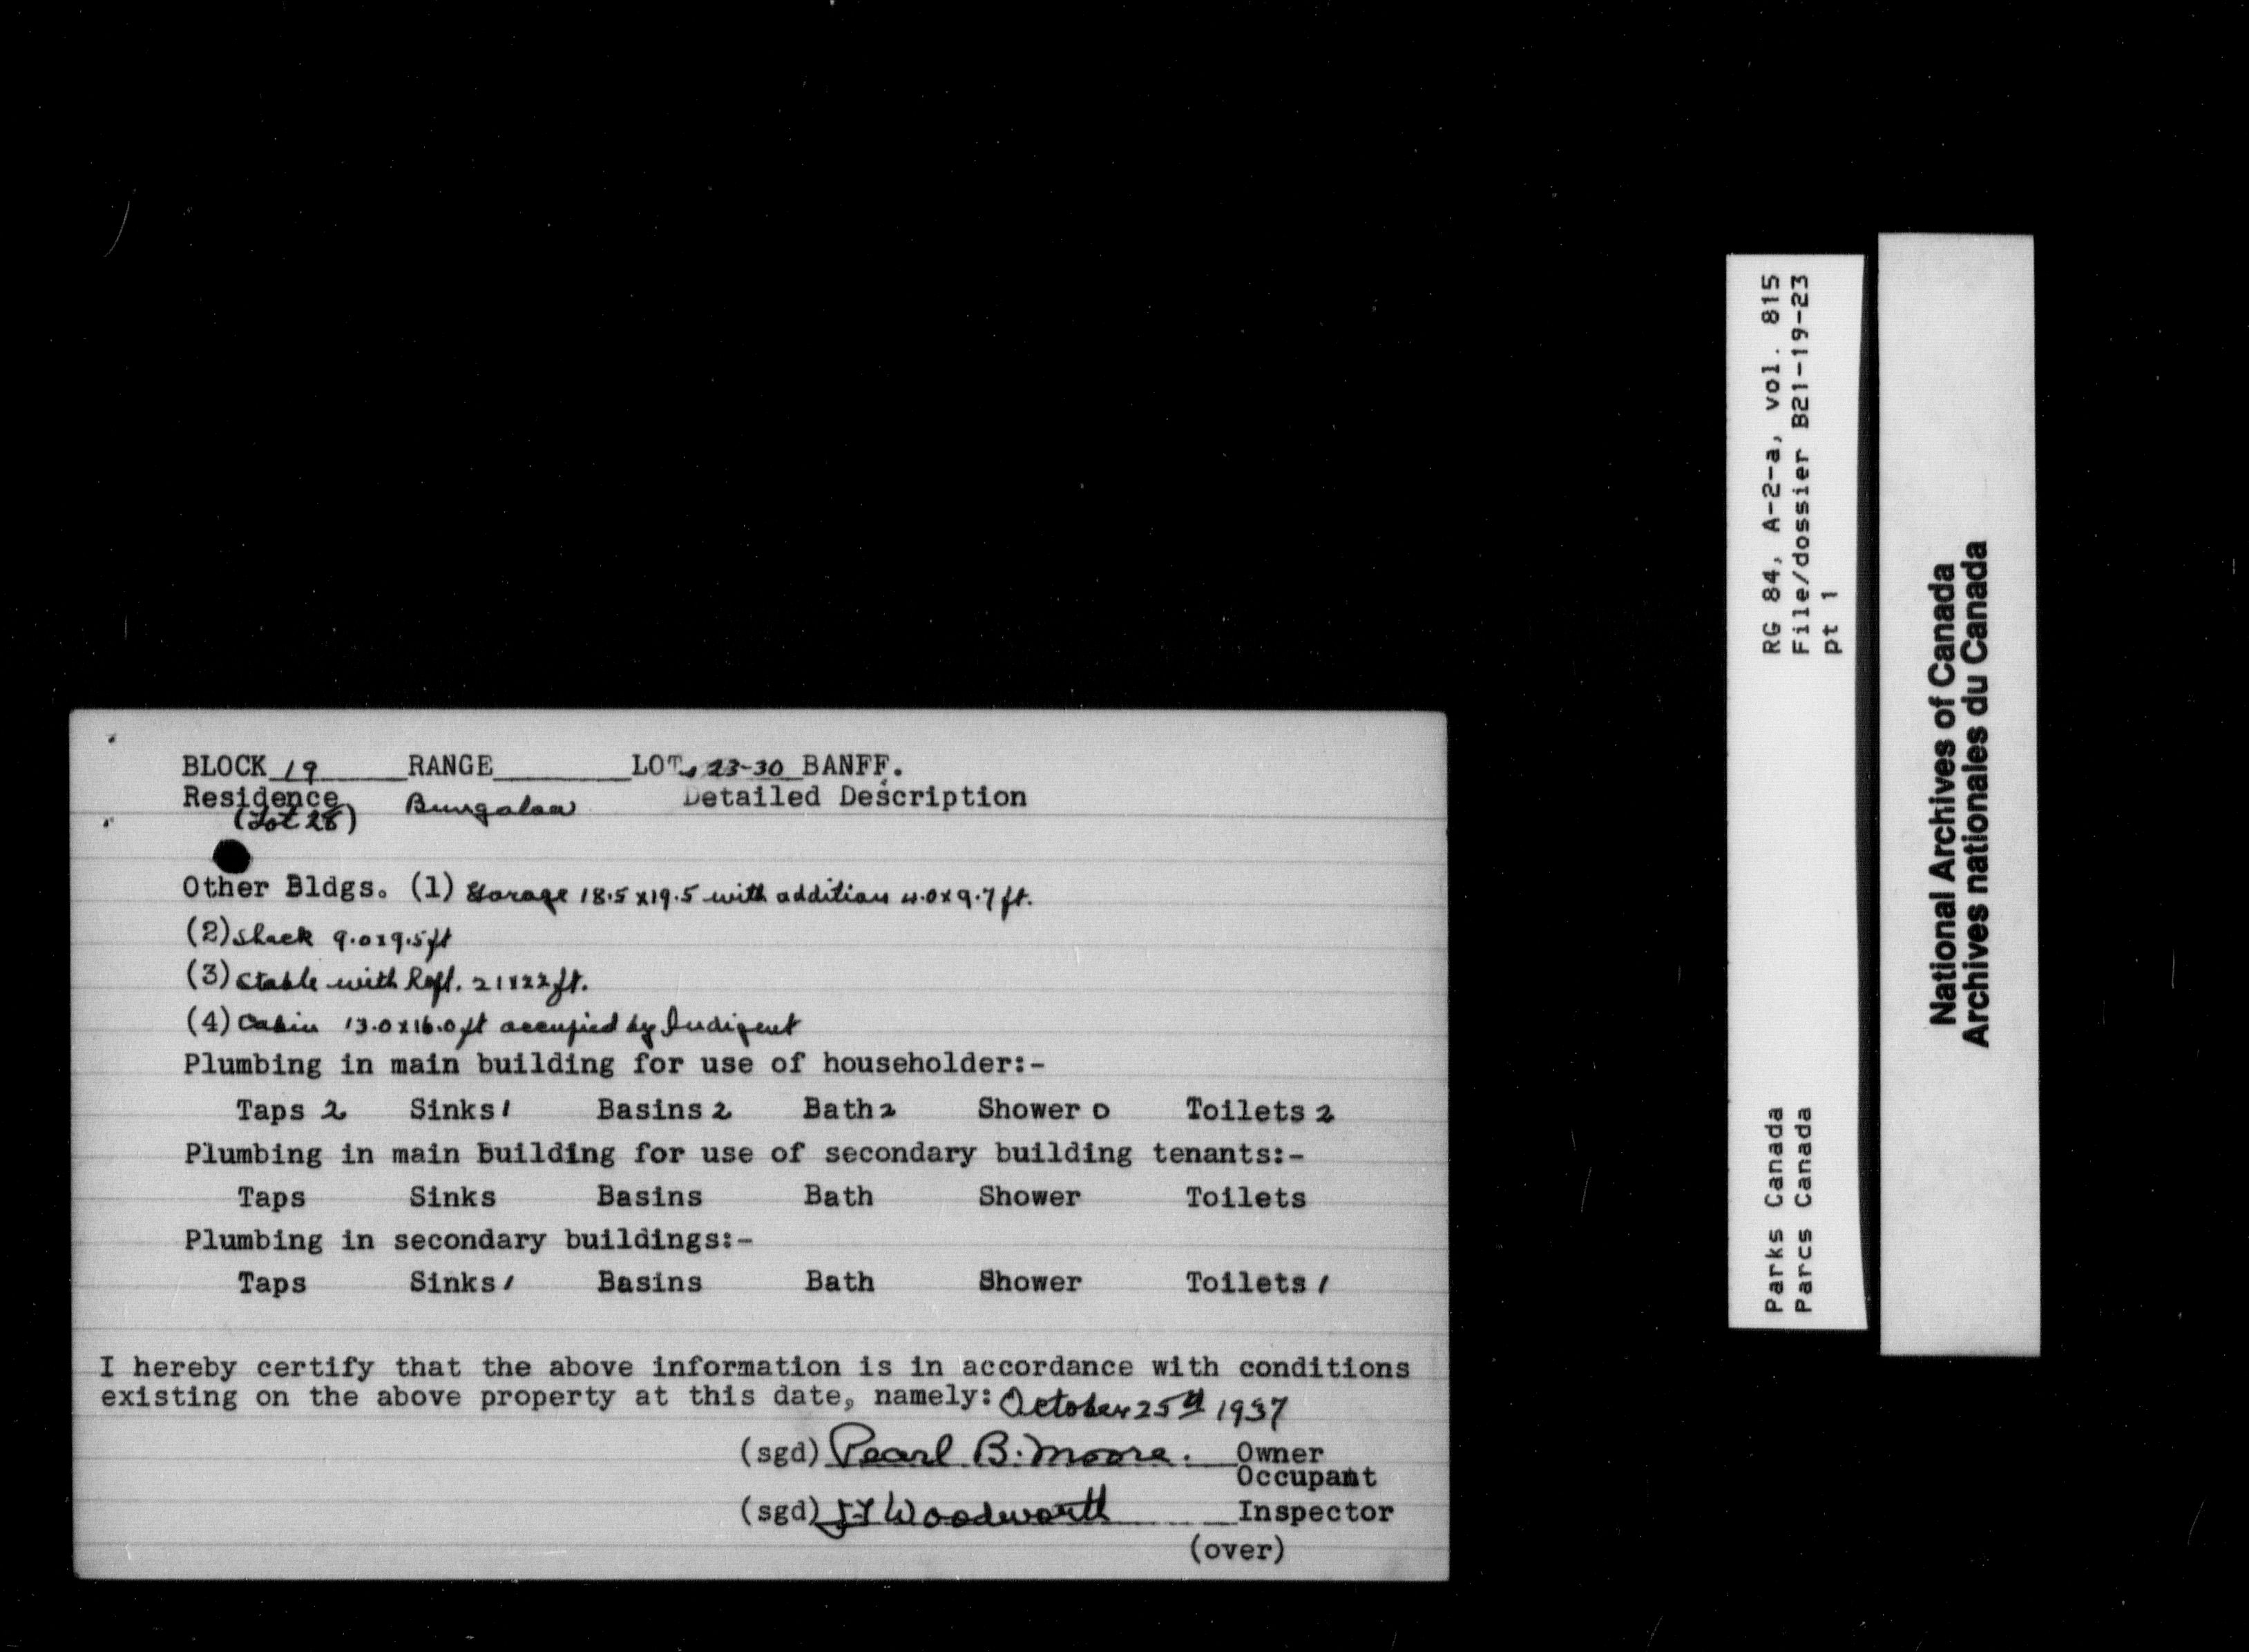 BLOCK 19 RANGE LOTs 23-30 BANFF.
Residence Bungalow Detailed Description
(Lot 28)
Other Bldgs. (1) Garage 18.5 x 19.5 with addition 4.0 x 9.7 ft.
(2) Shack 9.0 x 9.5 ft
(3) Stable with Loft. 21 x 22 ft.
(4) Cabin 13.0 x 16.0 ft occupied by Indigent
Plumbing in main building for use of householder:-
Taps 2 Sinks 1 Basins 2 Bath 2 Shower 0 Toilets 2
Plumbing in main Building for use of secondary building tenants:-
Taps Sinks Basins Bath Shower Toilets
Plumbing in secondary buildings:-
Taps Sinks 1 Basins Bath Shower Toilets 1
I hereby certify that the above information is in accordance with conditions
existing on the above property at this date, namely: October 25th 1937
(sgd) Pearl B. Moore. Owner
Occupant
(sgd) Woodworth Inspector
(over)
RG 84, A-2-a, vol. 815
File/dossier B21-19-23
pt 1
Parks Canada
Parcs Canada
National Archives of Canada
Archives nationales du Canada